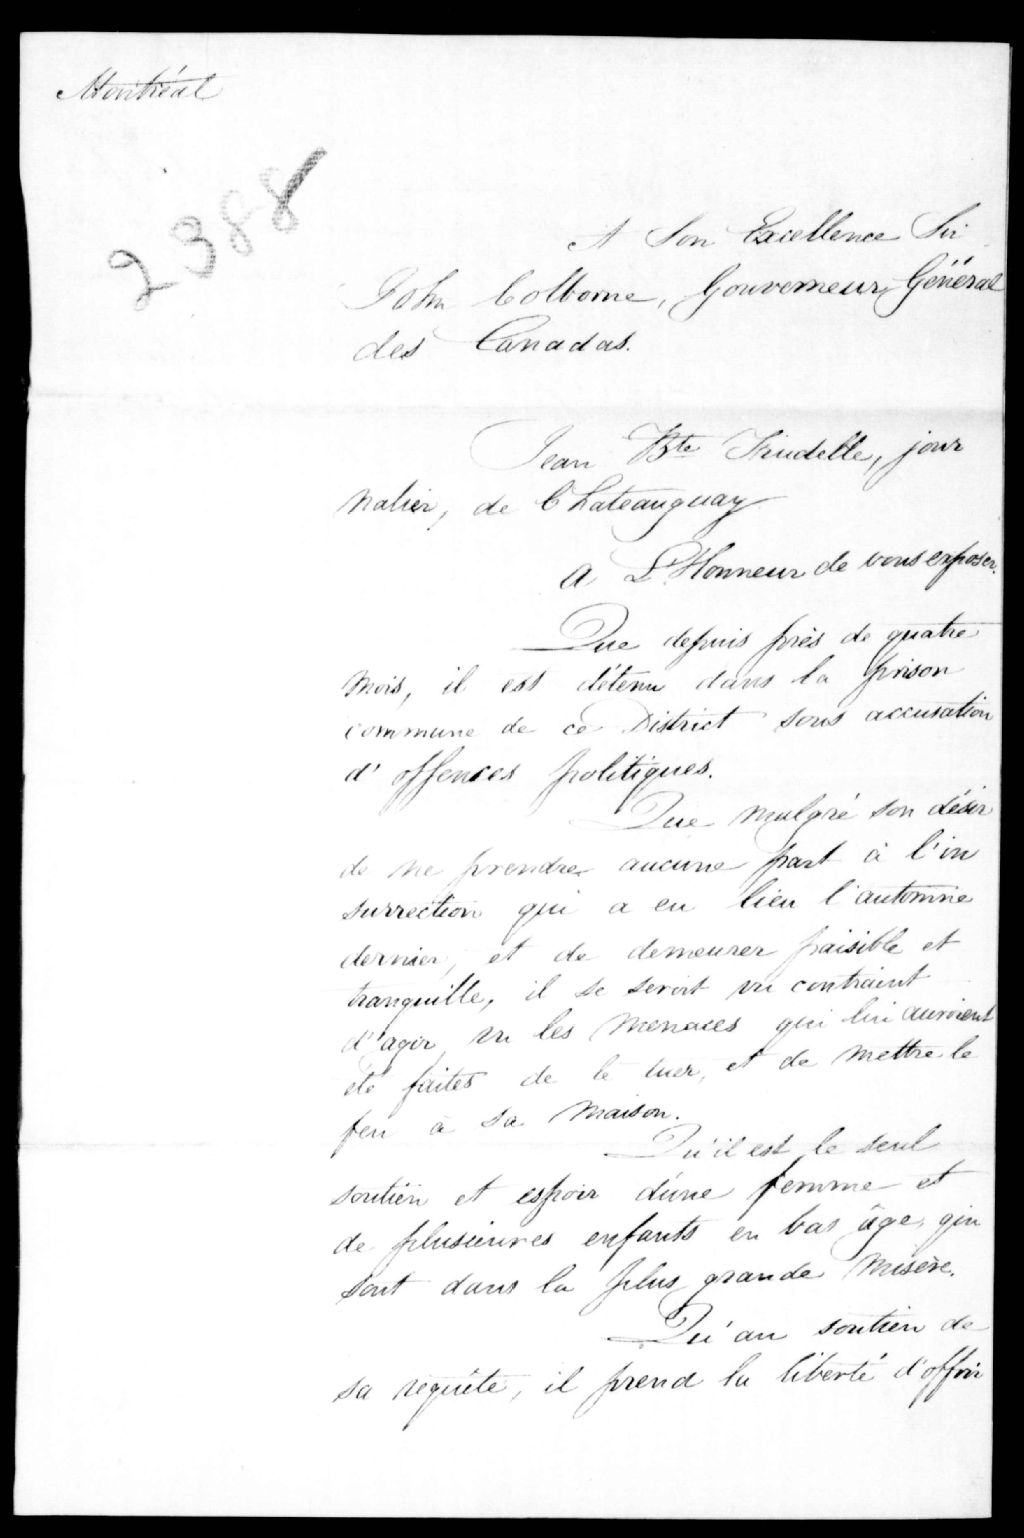 Montréal
2388
A Son Excellence Sir
John Colborne, Gouverneur Général
des Canadas.
Jean Bte Trudelle, jour
nalier, de Chateauguay
A L'Honneur de vous exposer.
Que depuis près de quatre
mois, il est détenu dans la prison
commune de ce District sous accusation
d'offences politiques.
Que malgré son désir
de ne prendre aucune part à l'in
surrection qui a eu lieu l'automne
dernier, et de demeurer paisible et
tranquille, il se seroit vu contraint
d'agir, vu les menaces qui lui auroient
été faites de le tuer, et de mettre le
feu à sa maison.
Qu'il est le seul
soutien et espoir d'une femme et
de plusieures enfants en bas âge, qui
sont dans la plus grande misère.
Qu'au soutien de
sa requête, il prend la liberté d'offrir